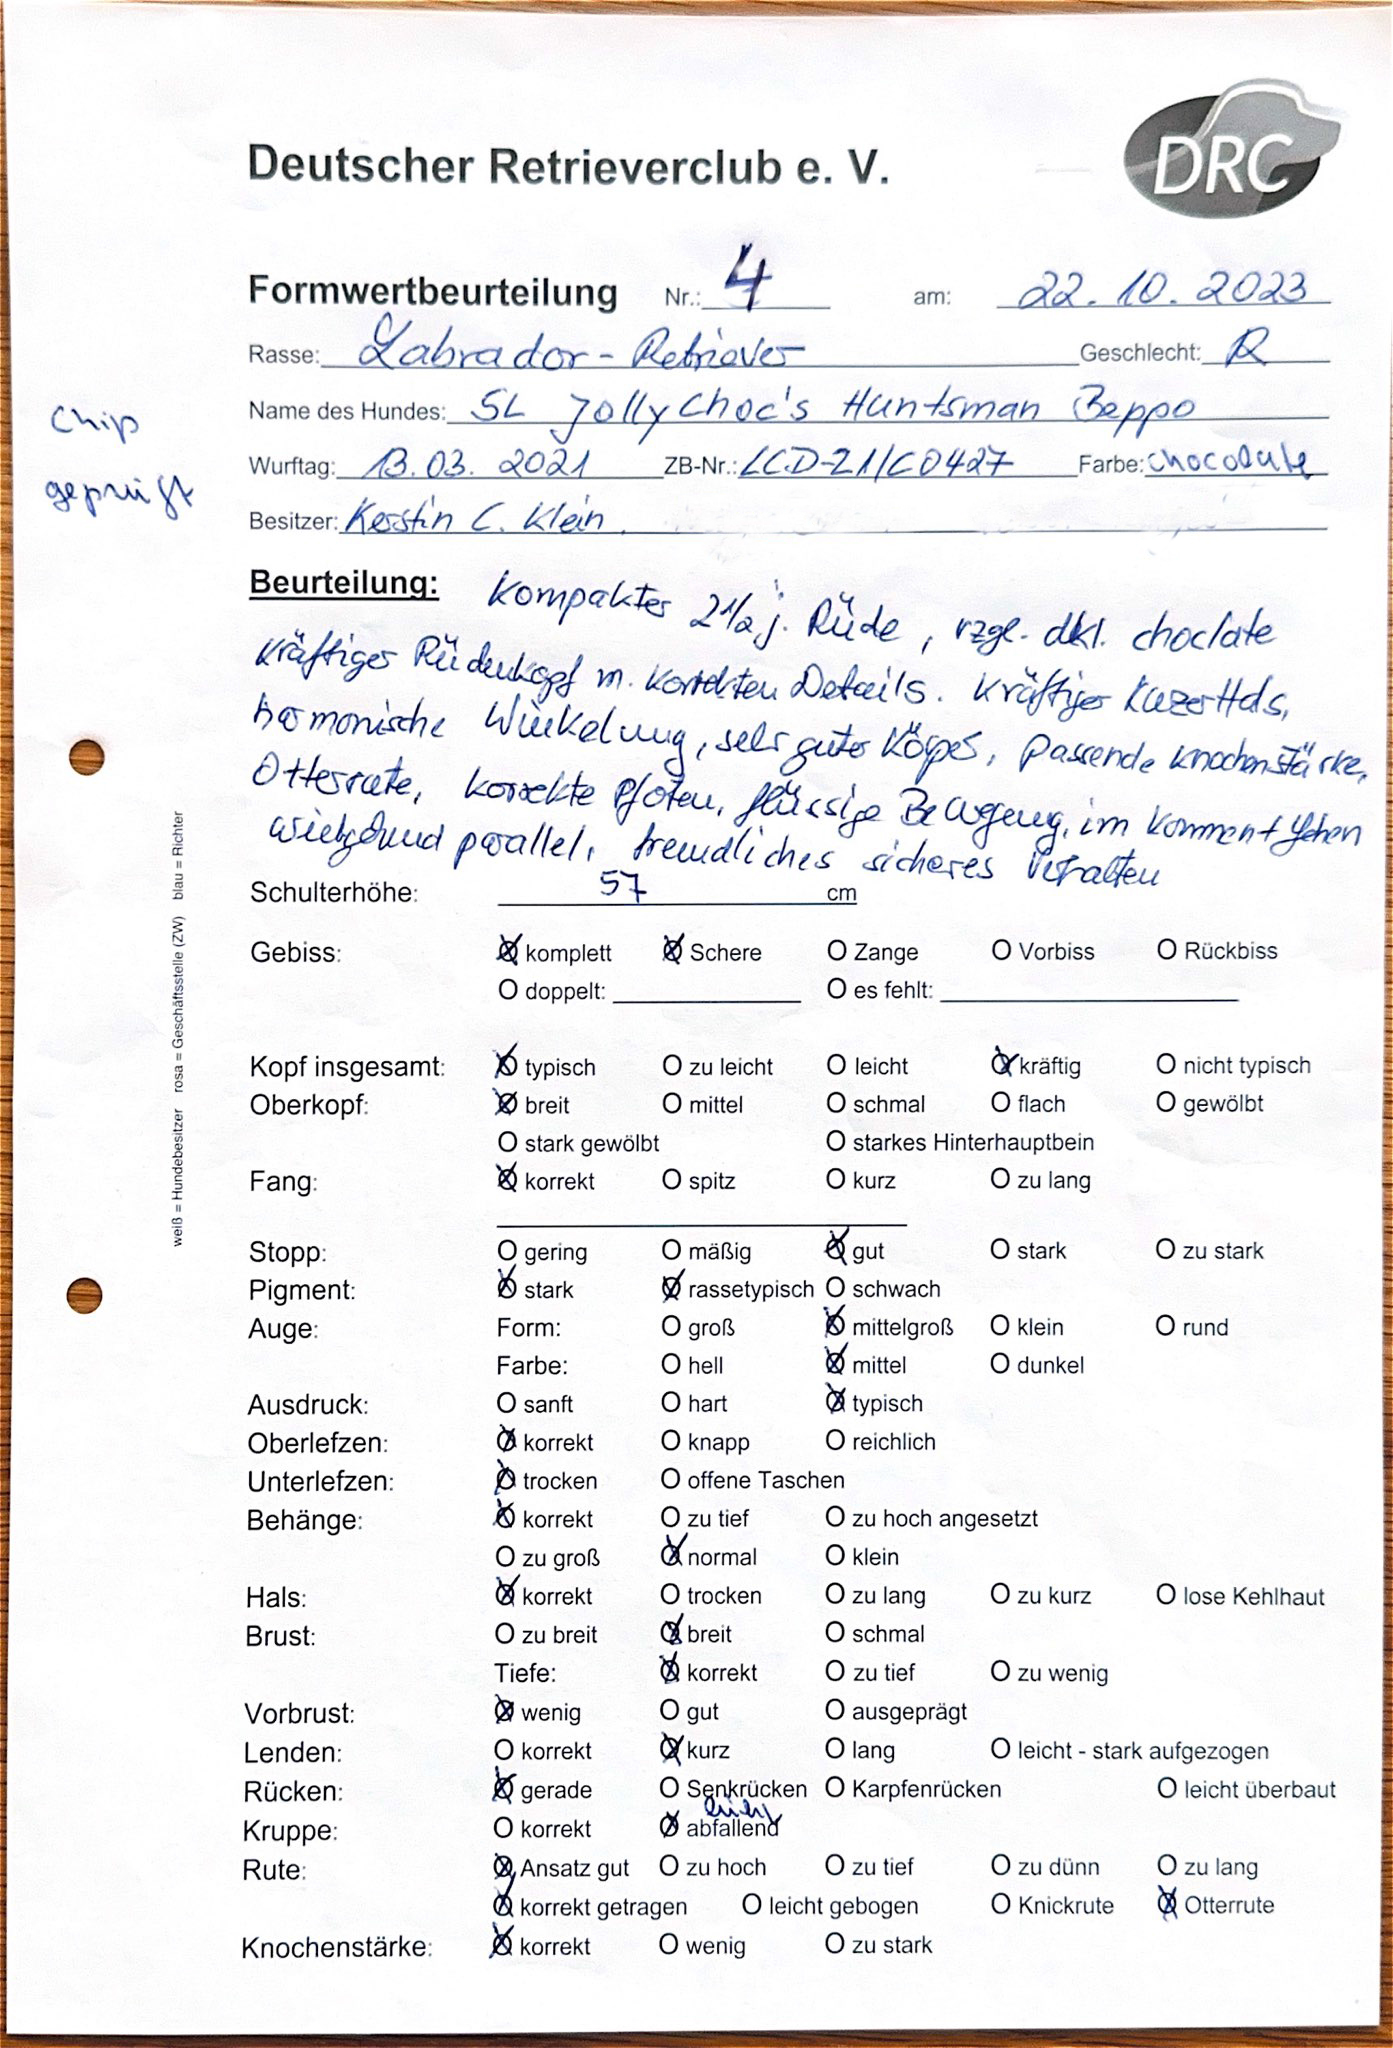 DRC
Deutscher Retrieverclub e. V.
Formwertbeurteilung Nr.: 4 am: 22.10.2023
Rasse: Labrador-Retriever Geschlecht: R
Name des Hundes: SL Jolly Choc's Huntsman Beppo
Chip
geprüft
Wurftag: 13.03.2021 ZB-Nr.: LCD-21/C0427 Farbe: chocolate
Besitzer: Kerstin C. Klein
Beurteilung: Kompakter 2 1/2 j. Rüde, rzgl. dkl. choclate
kräftiger Rüdenkopf m. korrekten Details. Kräftiger kurzer Hals,
harmonische Winkelung, sehr guter Körper, passende Knochenstärke,
Otterrute, korrekte Pfoten, flüssige Bewegung, im Kommen + Gehen
parallel, freundliches sicheres Verhalten
Schulterhöhe: 57 cm
Gebiss: komplett Schere O Zange O Vorbiss O Rückbiss
O doppelt: O es fehlt:
Kopf insgesamt: typisch O zu leicht O leicht kräftig O nicht typisch
Oberkopf: breit O mittel O schmal O flach O gewölbt
O stark gewölbt O starkes Hinterhauptbein
Fang: korrekt O spitz O kurz O zu lang
Stopp: O gering O mäßig gut O stark O zu stark
Pigment: stark rassetypisch O schwach
Auge: Form: O groß mittelgroß O klein O rund
Farbe: O hell mittel O dunkel
Ausdruck: O sanft O hart typisch
Oberlefzen: korrekt O knapp O reichlich
Unterlefzen: trocken O offene Taschen
Behänge: korrekt O zu tief O zu hoch angesetzt
O zu groß normal O klein
Hals: korrekt O trocken O zu lang O zu kurz O lose Kehlhaut
Brust: O zu breit breit O schmal
Tiefe: korrekt O zu tief O zu wenig
Vorbrust: wenig O gut O ausgeprägt
Lenden: O korrekt kurz O lang O leicht - stark aufgezogen
Rücken: gerade O Senkrücken O Karpfenrücken O leicht überbaut
Kruppe: O korrekt abfallend
Rute: Ansatz gut O zu hoch O zu tief O zu dünn O zu lang
korrekt getragen O leicht gebogen O Knickrute Otterrute
Knochenstärke: korrekt O wenig O zu stark
weiß = Hundebesitzer rosa = Geschäftsstelle (ZW) blau = Richter